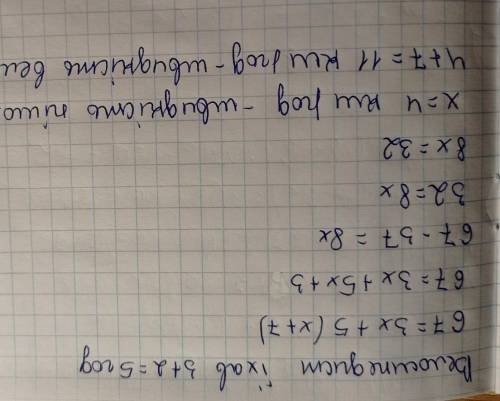 Велосипедист їхав 3+2=5 год
67=3x+5(x+7)
67=3x+5x+35
67-35=8x
32=8x
8x=32
x=4 км/год - швидкість пішо
4+7=11 км/год - швидкість вел